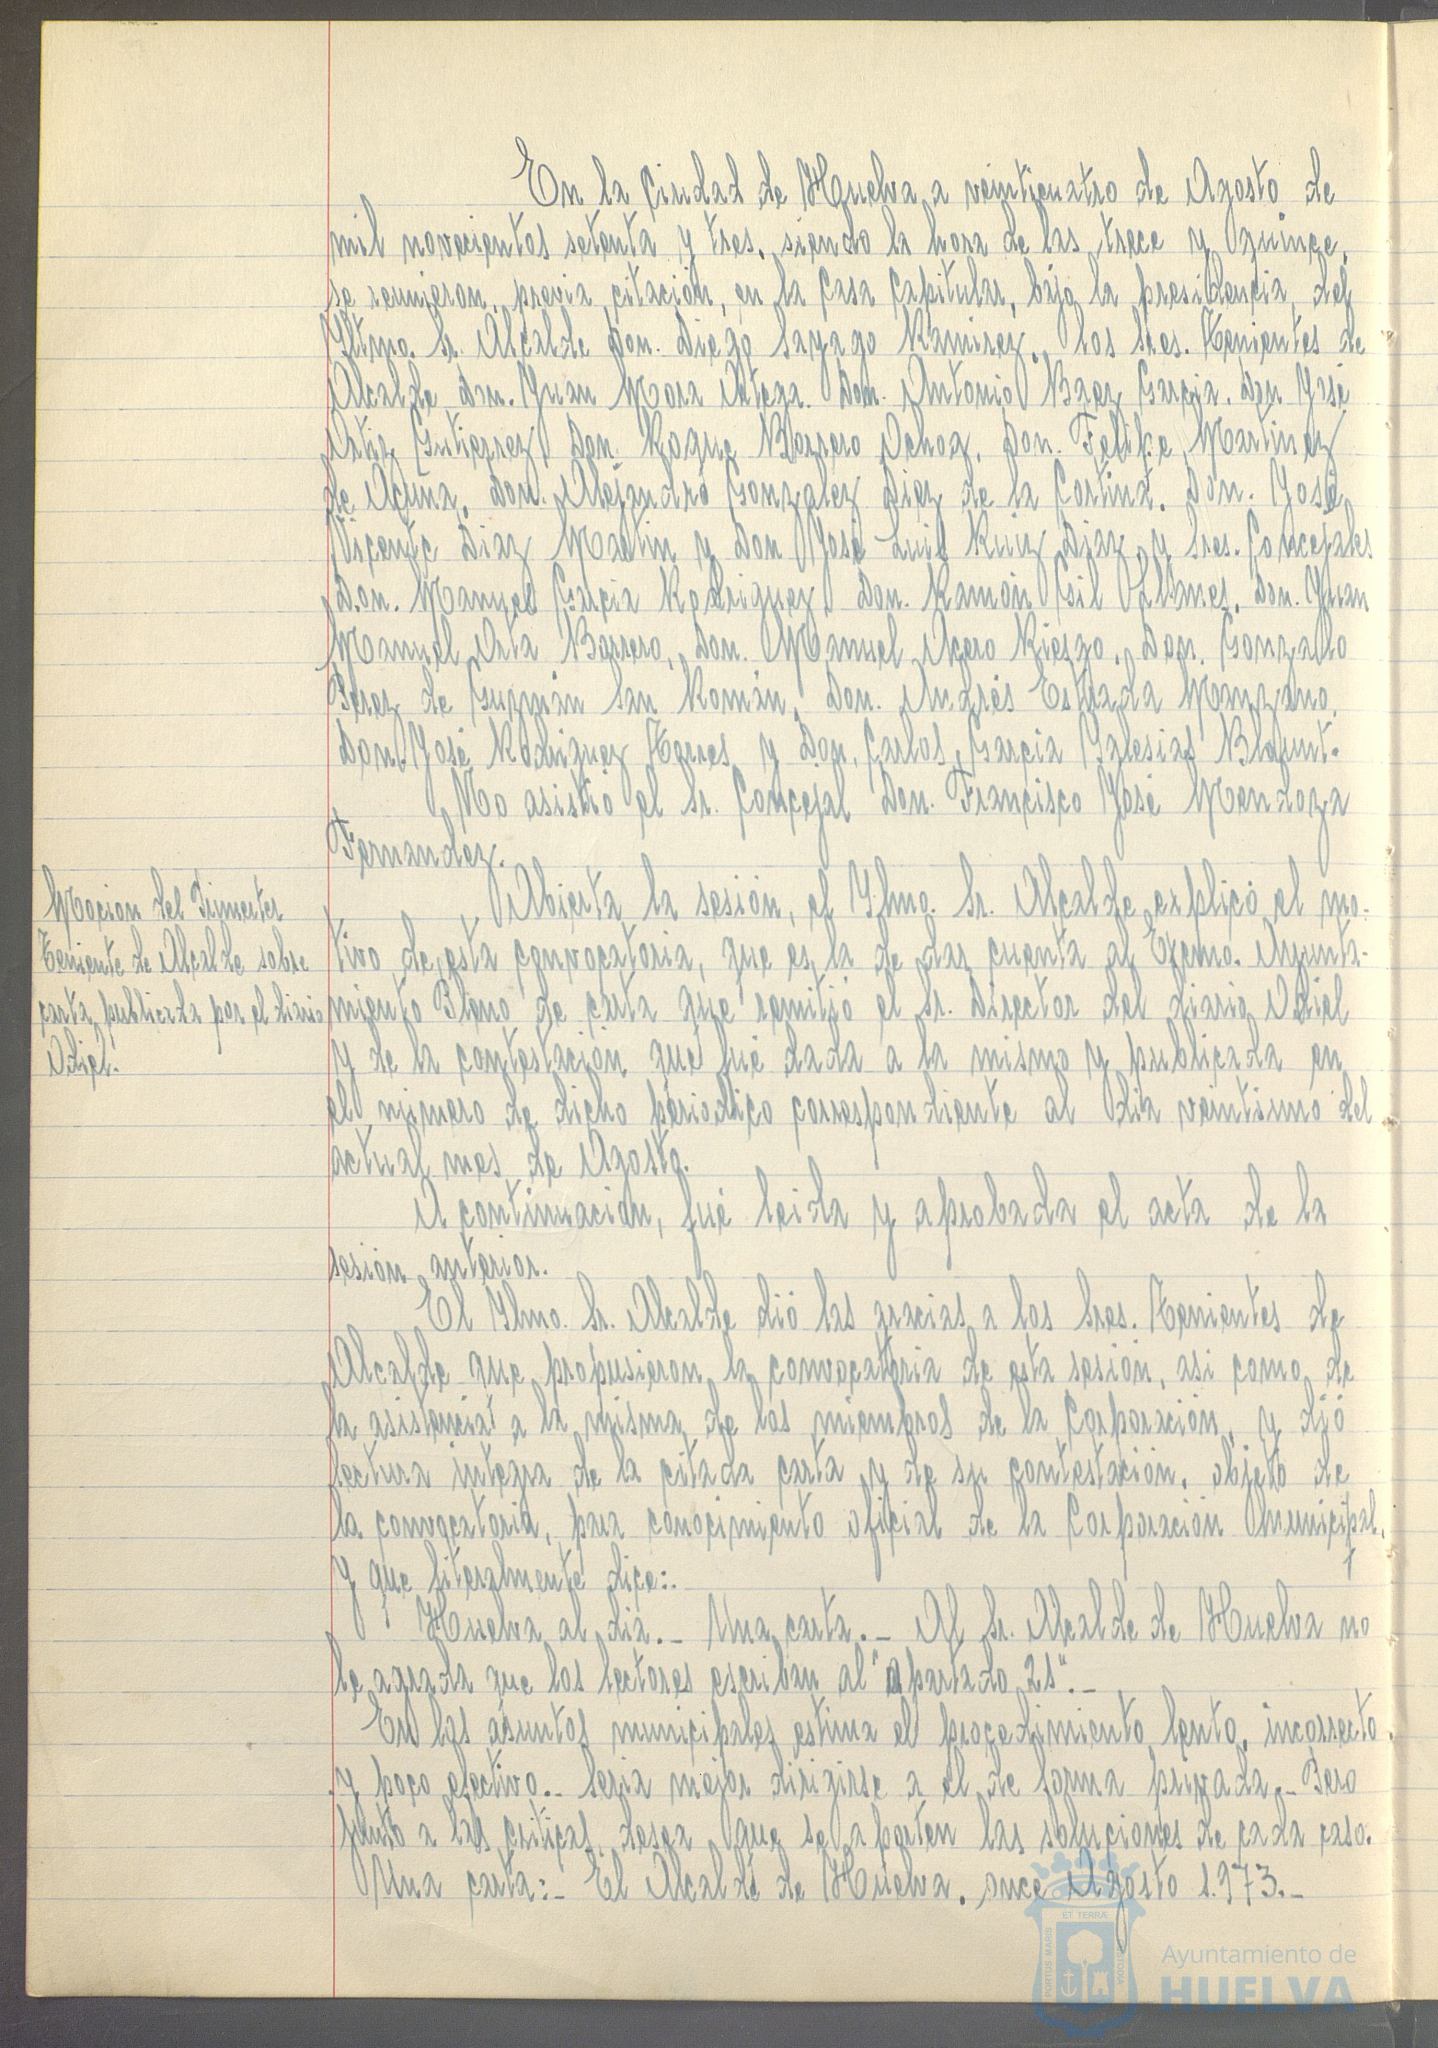 En la Ciudad de Huelva a veinticuatro de Agosto de
mil novecientos setenta y tres, siendo la hora de las trece y quince,
se reunieron, previa citación, en la Casa Capitular, bajo la presidencia, del
Iltmo. Sr. Alcalde Don. Diego Sayago Ramirez, los Sres. Tenientes de
Alcalde Don. Juan Mora Ortega. Don. Antonio Baez Garcia. Don José
Ortiz Gutierrez, Don. Roque Borrero Ochoa, Don. Felipe Martinez
de Acuña, Don. Alejandro Gonzalez Diez de la Cortina, Don. José
Vicente Diaz Martin y Don José Luis Ruiz Diaz, y Sres. Concejales
Don. Manuel Garcia Rodriguez, Don. Ramón Gil Don. Juan
Manuel Orta Borrero, Don. Manuel Acero Riesgo, Don. Gonzalo
Perez de Guzmán San Román, Don. Andrés Estrada Manzano,
Don. José Rodriguez Torres y Don. Carlos Garcia Yglesias Blount.
No asistió el Sr. Concejal Don. Francisco José Mendoza
Fernandez.
Mocion del
Teniente de Alcalde sobre
carta publicada por el diario
Odiel.
Abierta la sesión, el Ylmo. Sr. Alcalde explicó el mo-
tivo de esta convocatoria, que es la de dar cuenta al Excmo. Ayunta-
miento Pleno de carta que remitió el Sr. Director del diario Odiel
y de la contestación que fué dada a la mismo y publicada en
el número de dicho periodico correspondiente al dia veintiuno del
actual mes de Agosto.
A continuación, fué leida y aprobada el acta de la
sesión anterior.
El Ylmo. Sr. Alcalde dió las gracias a los Sres. Tenientes de
Alcalde que propusieron la convocatoria de esta sesión, asi como de
la asistencia a la misma de los miembros de la Corporación, y dió
lectura integra de la citada carta y de su contestación, objeto de
la convocatoria, para conocimiento oficial de la Corporación Municipal,
y que literalmente dice:.
Huelva al dia.- Una carta.- Al Sr. Alcalde de Huelva no
le agrada que los lectores escriban al "Apartado 21".-
En los asuntos municipales estima el procedimiento lento, incorrecto
y poco efectivo.- Seria mejor dirigirse a el de forma privada.- Pero
junto a las criticas, desea que se aporten las soluciones de cada caso.
Una carta:- El Alcalde de Huelva, once Agosto 1.973.-
ET TERRÆ
PORTUS MARIS
CUSTODIA
Ayuntamiento de
HUELVA